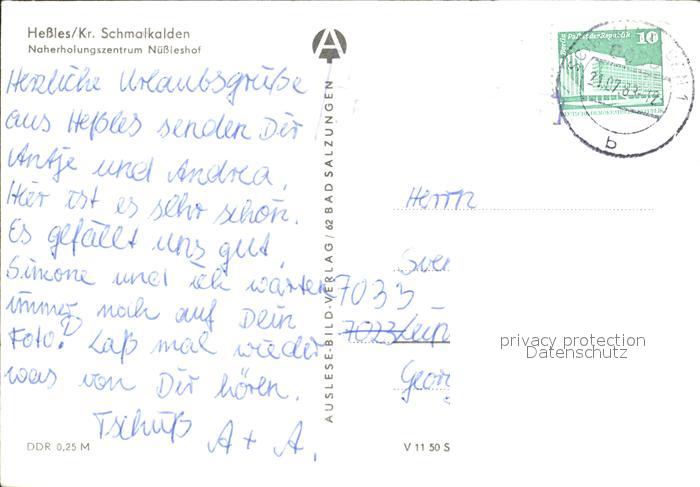 Heßles/Kr. Schmalkalden
Naherholungszentrum Nüßleshof
Herzliche Urlaubsgrüße
aus Heßles senden Dir
Antje und Andrea.
Hier ist es sehr schön.
Es gefällt uns gut.
Simone und ich warten
immer noch auf Dein
Foto! Laß mal wieder
was von Dir hören.
Tschüß A + A.
DDR 0,25 M
AUSLESE-BILD-VERLAG / 62 BAD SALZUNGEN
Berlin Palast der Republik 10
21.07.83-12
b
Herrn
Sven
7033
7023 Leip
Georg
privacy protection
Datenschutz
V 11 50 S